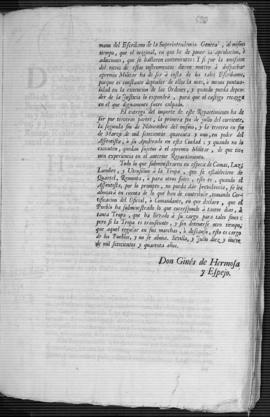 mano del Escribano de la Superintendencia General, al mismo
tiempo, que el original, en que he de poner la aprobacion, ò
adiciones, que se hallaren convenientes: I si por la omission
del envio de estos instrumentos diere motivo à despachar
apremio Militar ha de ser à costa de los tales Escribanos,
porque es constante depender de ellos la mas, ò menos puntua-
lidad en la execucion de las Ordenes, y quando pueda depen-
der de la Justicia lo expondrà, para que el castigo recayga
en el que dignamente fuere culpado.
El entrego del importe de este Repartimiento ha de
ser por terceras partes, la primera fin de Julio del corriente,
la segunda fin de Noviembre del mismo, y la tercera en fin
de Marzo de mil setecientos quarenta y uno, en poder del
Assentista, ò su Apoderado en esta Ciudad; y quando no lo
executen, quedan sujetos à el apremio Militar, de que tie-
nen experiencia en el anterior Repartimiento.
Todo lo que subministraren en especie de Camas, Luz,
Lumbre, y Utensilios à la Tropa, que se estableciere de
Quartel, Remonta, ò para otros fines, esto es, quando el
Assentista, por lo prompto, no pueda dàr providencia, se les
abonarà en cuenta de lo que han de contribuir, tomando Cer-
tificacion del Oficial, ò Comandante, en que declare, que el
Pueblo ha subministrado lo que corresponde à tantos dias, à
tanta Tropa, que ha llevado à su cargo para tales fines;
pero si la Tropa es transeunte, y sin detenerse mas tiempo,
que aquel regular en sus marchas, ò descanso, esto es cargo
de los Pueblos, y no se abona. Sevilla, y Julio diez, y nueve
de mil setecientos y quarenta años.
Don Ginès de Hermosa
y Espejo.